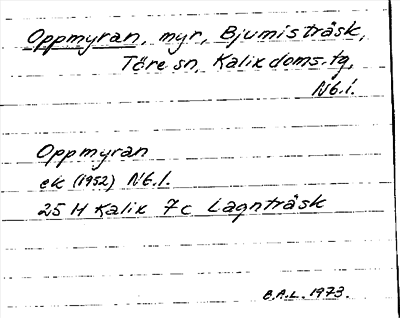 Oppmyran, myr, Bjumisträsk,
Töre sn, Kalix doms.tg,
Nb.l.
Oppmyran
ek (1952) Nb.l.
25 H Kalix 7c Lagnträsk
E.A.L. 1973.